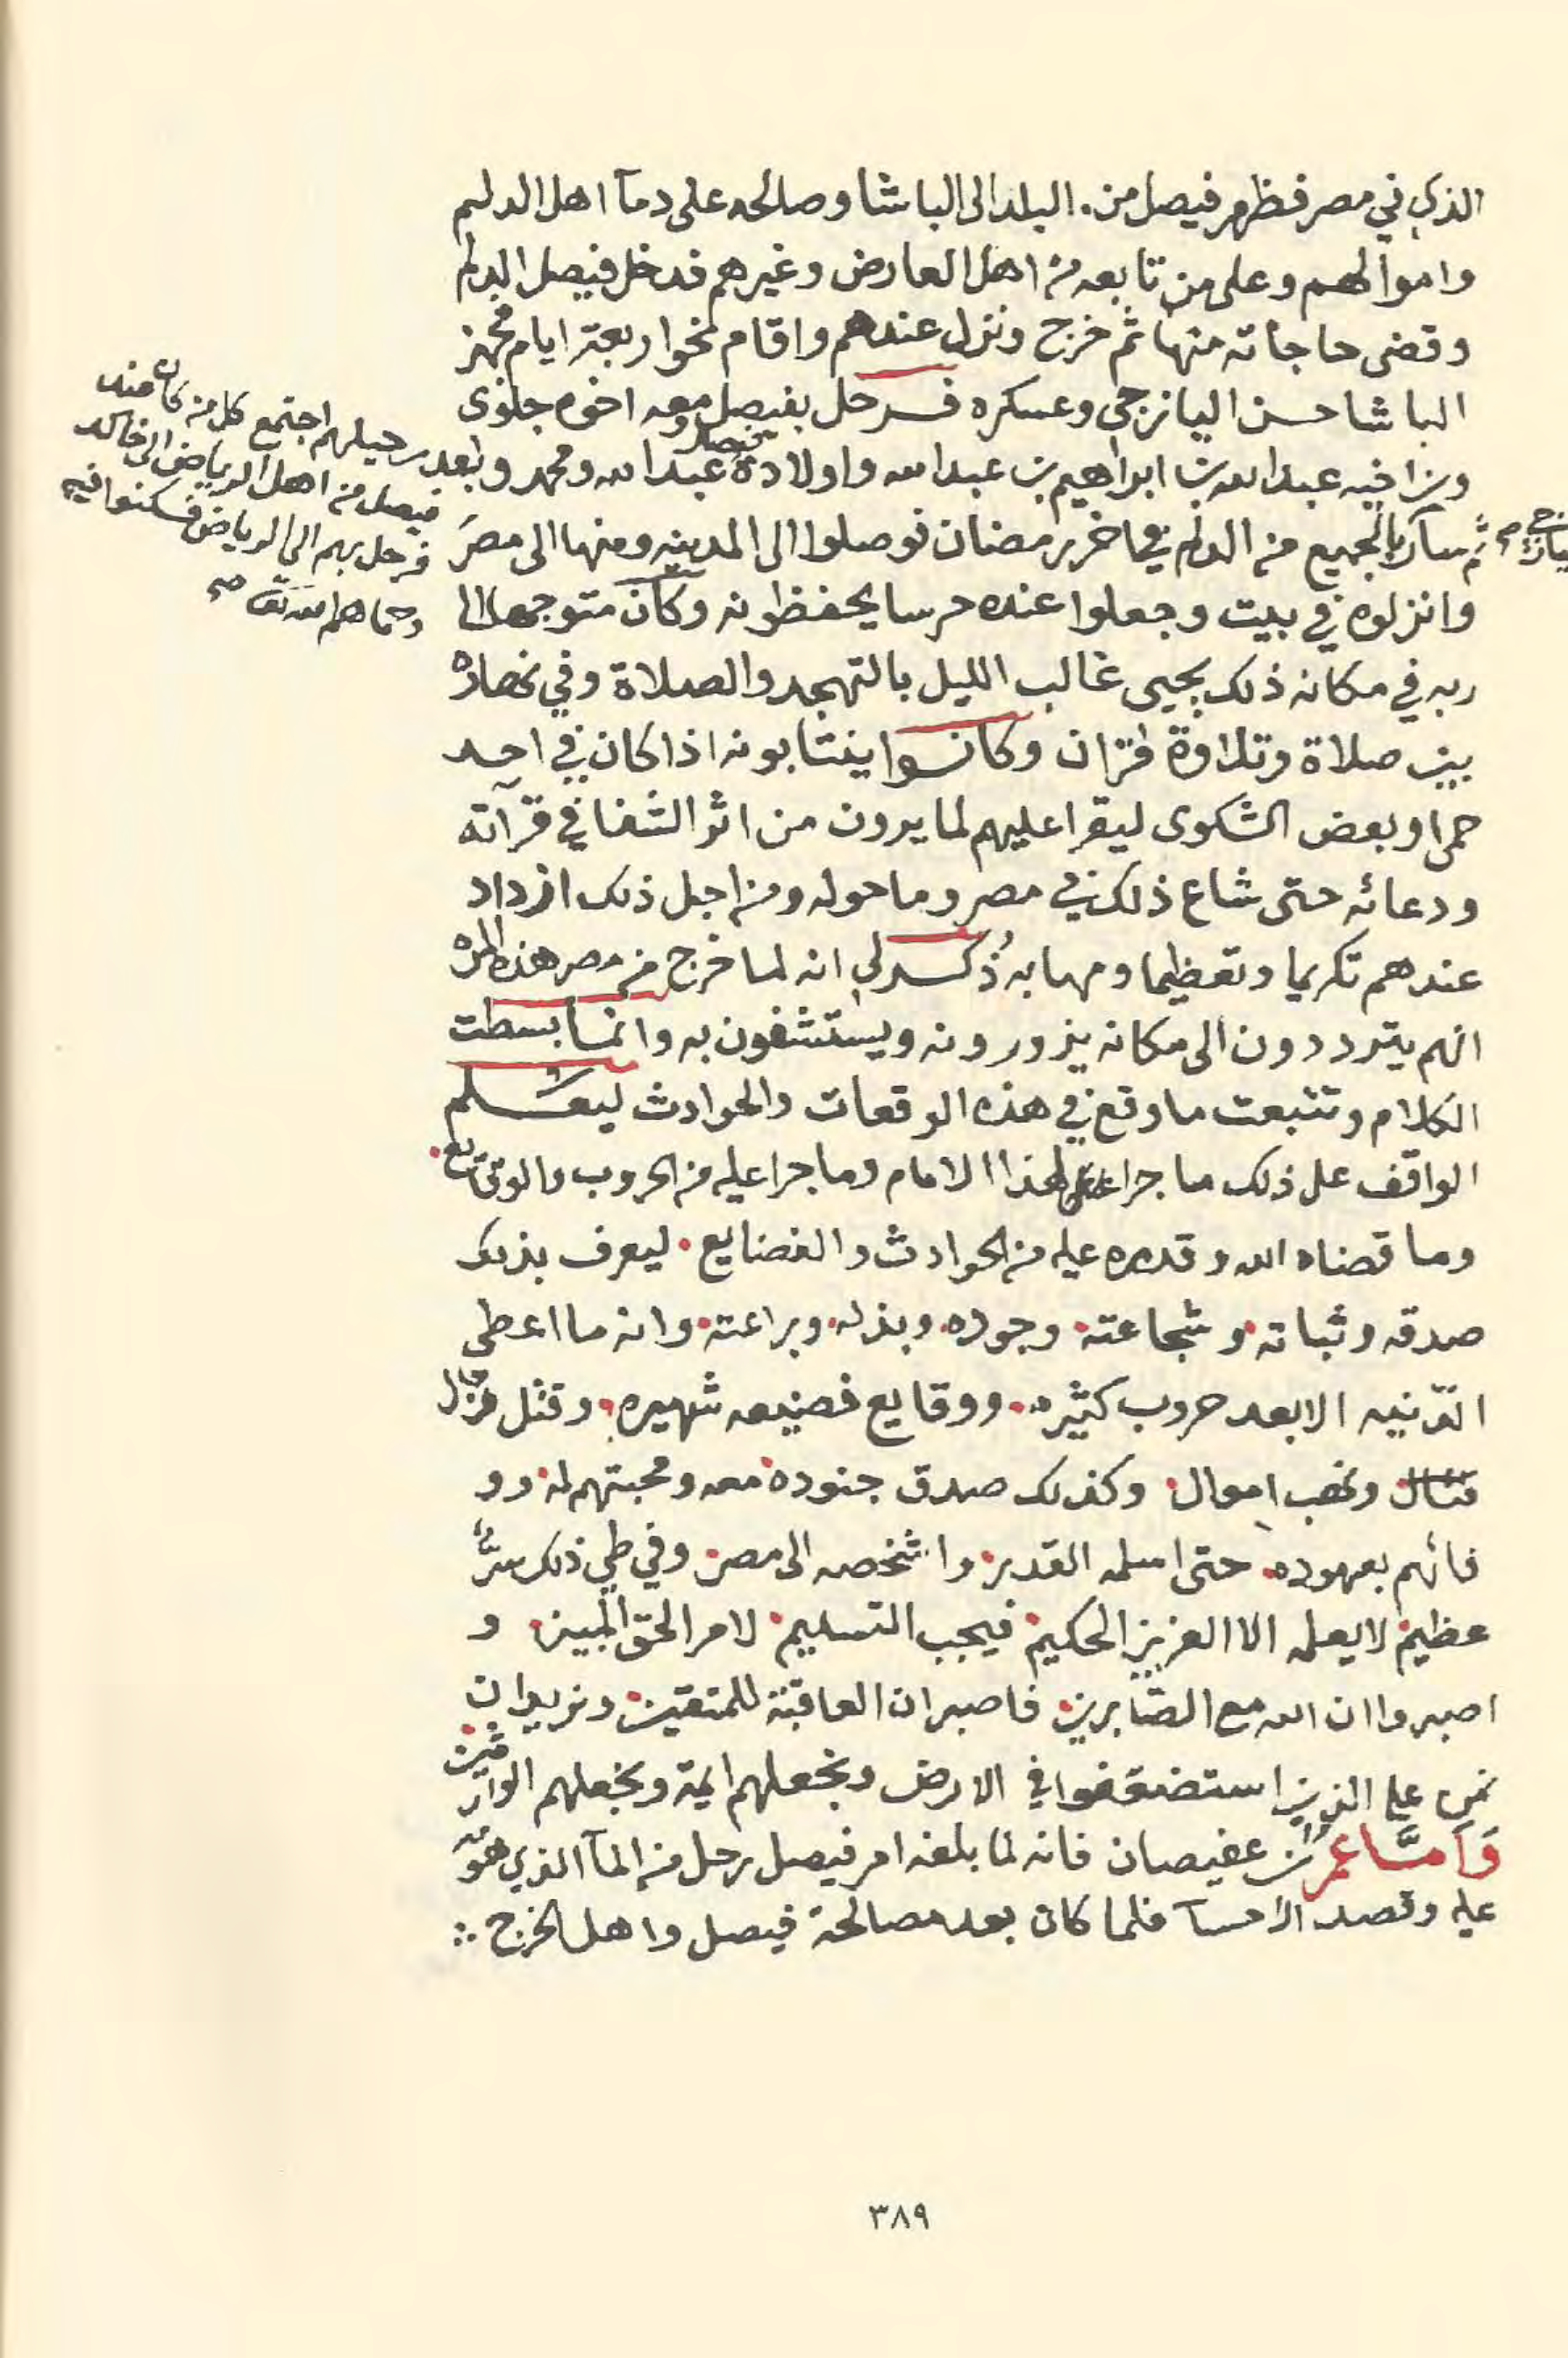 الذي في مصر فظهر فيصل من البلد الى الباشا وصالحه على دمآ اهل الدلم
واموالهم وعلى من تابعه من اهل العارض وغيرهم فدخل فيصل الدلم
وقضى حاجاته منها ثم خرج ونزل عندهم واقام نحوا ربعة ايام فجهز
الباشا حسن اليازجي وعسكره فرحل بفيصل ومعه اخوه جلوى
وبن اخيه عبدالله بن ابراهيم بن عبدالله واولاده عبدالله ومحمد
وبعد رحيلهم اجتمع كل من كان عند
فيصل من اهل الرياض الى خالد
فرحل بهم الى الرياض فسكنوا فيه
وحماهم الله تعا صح
ثم سار بالجميع من الدلم في اخر رمضان فوصلوا الى المدينه ومنها الى مصر
وانزلوه في بيت وجعلوا عنده حرسا يحفظونه وكان متوجها الا
ربه في مكانه ذلك يحيى غالب الليل بالتهجد والصلاة وفي نهاره
بين صلاة وتلاوة قران وكانوا ينتابونه اذا كان في احد
حمى او بعض الشكوى ليقرا عليهم لما يرون من اثر الشفا في قرآته
ودعائه حتى شاع ذلك في مصر وما حوله ومن اجل ذلك ازداد
عندهم تكريما وتعظيما ومهابه ذُكر لي انه لما خرج من مصر هذه المره
انهم يترددون الى مكانه يزورونه ويستشفون به وانما بسطت
الكلام وتتبعت ما وقع في هذه الوقعات والحوادث ليعلم
الواقف على ذلك ما جرا لهذا الامام وما جرا عليه من الحروب والوقايع
وما قضاه الله وقدره عليه من الحوادث والفضايع ليعرف بذلك
صدقه وثباته وشجاعته وجوده وبذله وبراعته وانه ما اعطى
الدّنيه الا بعد حروب كثيره ووقايع فضيعه شهيره وقتل رجال
ونهب اموال وكذلك صدق جنوده معه ومحبتهم له وو
فائهم بعهوده حتى اسلمه القدر واشخصه الى مصر وفي طي ذلك سرٌّ
عظيم لا يعلمه الا العزيز الحكيم فيجب التسليم لامر الحق المبين و
اصبروا ان الله مع الصّابرين فاصبر ان العاقبة للمتقين ونريد ان
نمن على الذين استضعفوا في الارض ونجعلهم ايمة ونجعلهم الوارثين
وَاَمَّا عمر بن عفيصان فانه لما بلغه امر فيصل رحل من المآ الذي هو
عليه وقصد الاحسآ فلما كان بعد مصالحة فيصل واهل الخرج
٣٨٩